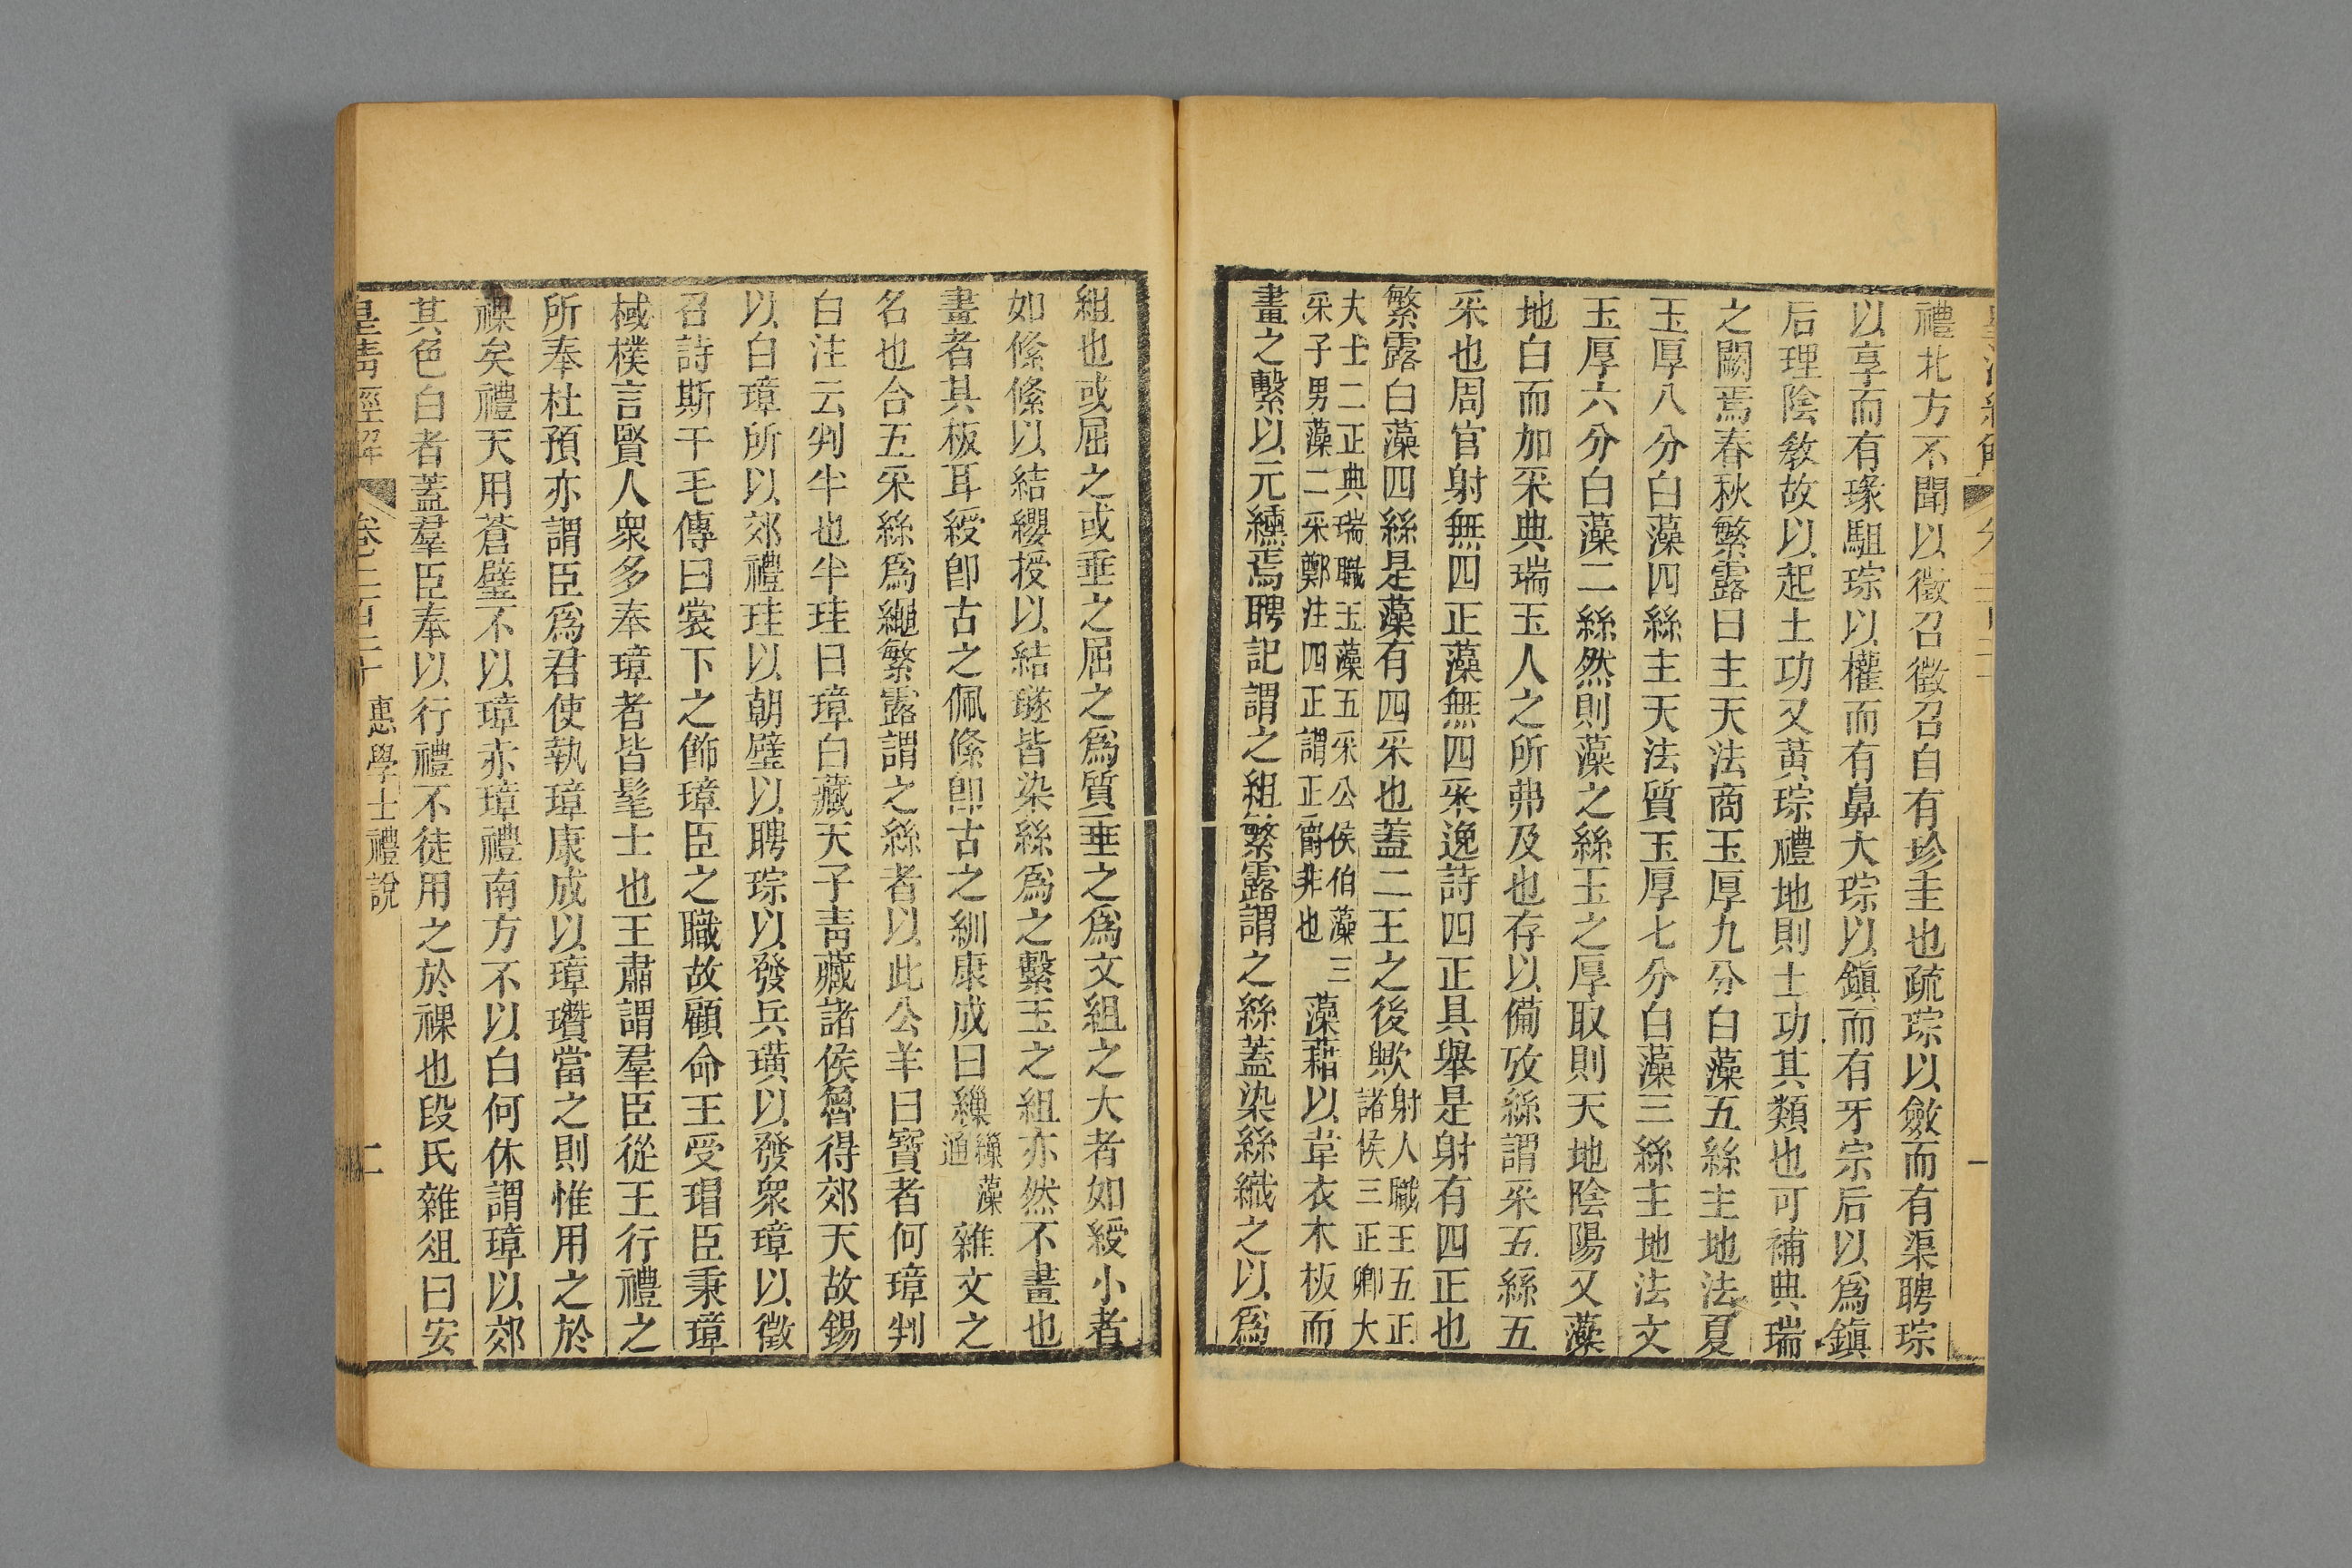 禮北方不聞以徵召徵召自有珍圭也疏琮以斂而有渠聘琮
以享而有瑑駔琮以權而有鼻大琮以鎮而有牙宗后以爲鎮
后理陰敎故以起土功又黃琮禮地則土功其類也可補典瑞
之闕焉春秋繁露曰主天法商玉厚九分白藻五絲主地法夏
玉厚八分白藻四絲主天法質玉厚七分白藻三絲主地法文
玉厚六分白藻二絲然則藻之絲玉之厚取則天地陰陽又藻
地白而加采典瑞玉人之所弗及也存以備攷絲謂采五絲五
采也周官射無四正藻無四采逸詩四正具舉是射有四正也
繁露白藻四絲是藻有四采也蓋二王之後歟射人職王五正諸侯三正卿大
夫士二正典瑞職王藻五采公侯伯藻三采子男藻二采鄭注四正謂正爵非也藻藉以韋衣木板而
畫之繫以元纁焉聘記謂之組繁露謂之絲蓋染絲織之以爲
組也或屈之或垂之屈之爲質垂之爲文組之大者如綬小者
如絛絛以結纓授以結璲皆染絲爲之繫玉之組亦然不畫也
畫者其板耳綬卽古之佩絛卽古之紃康成曰繅繅藻通雜文之
名也合五采絲爲繩繁露謂之絲者以此公羊曰寶者何璋判
白注云判半也半珪曰璋白藏天子靑藏諸侯魯得郊天故錫
以白璋所以郊禮珪以朝璧以聘琮以發兵璜以發衆璋以徵
召詩斯干毛傳曰裳下之飾璋臣之職故顧命王受瑁臣秉璋
棫樸言賢人衆多奉璋者皆髦士也王肅謂羣臣從王行禮之
所奉杜預亦謂臣爲君使執璋康成以璋瓚當之則惟用之於
祼矣禮天用蒼璧不以璋赤璋禮南方不以白何休謂璋以郊
其色白者蓋羣臣奉以行禮不徒用之於祼也段氏雜俎曰安
皇淸經解 卷二百二十 惠學士禮說 二